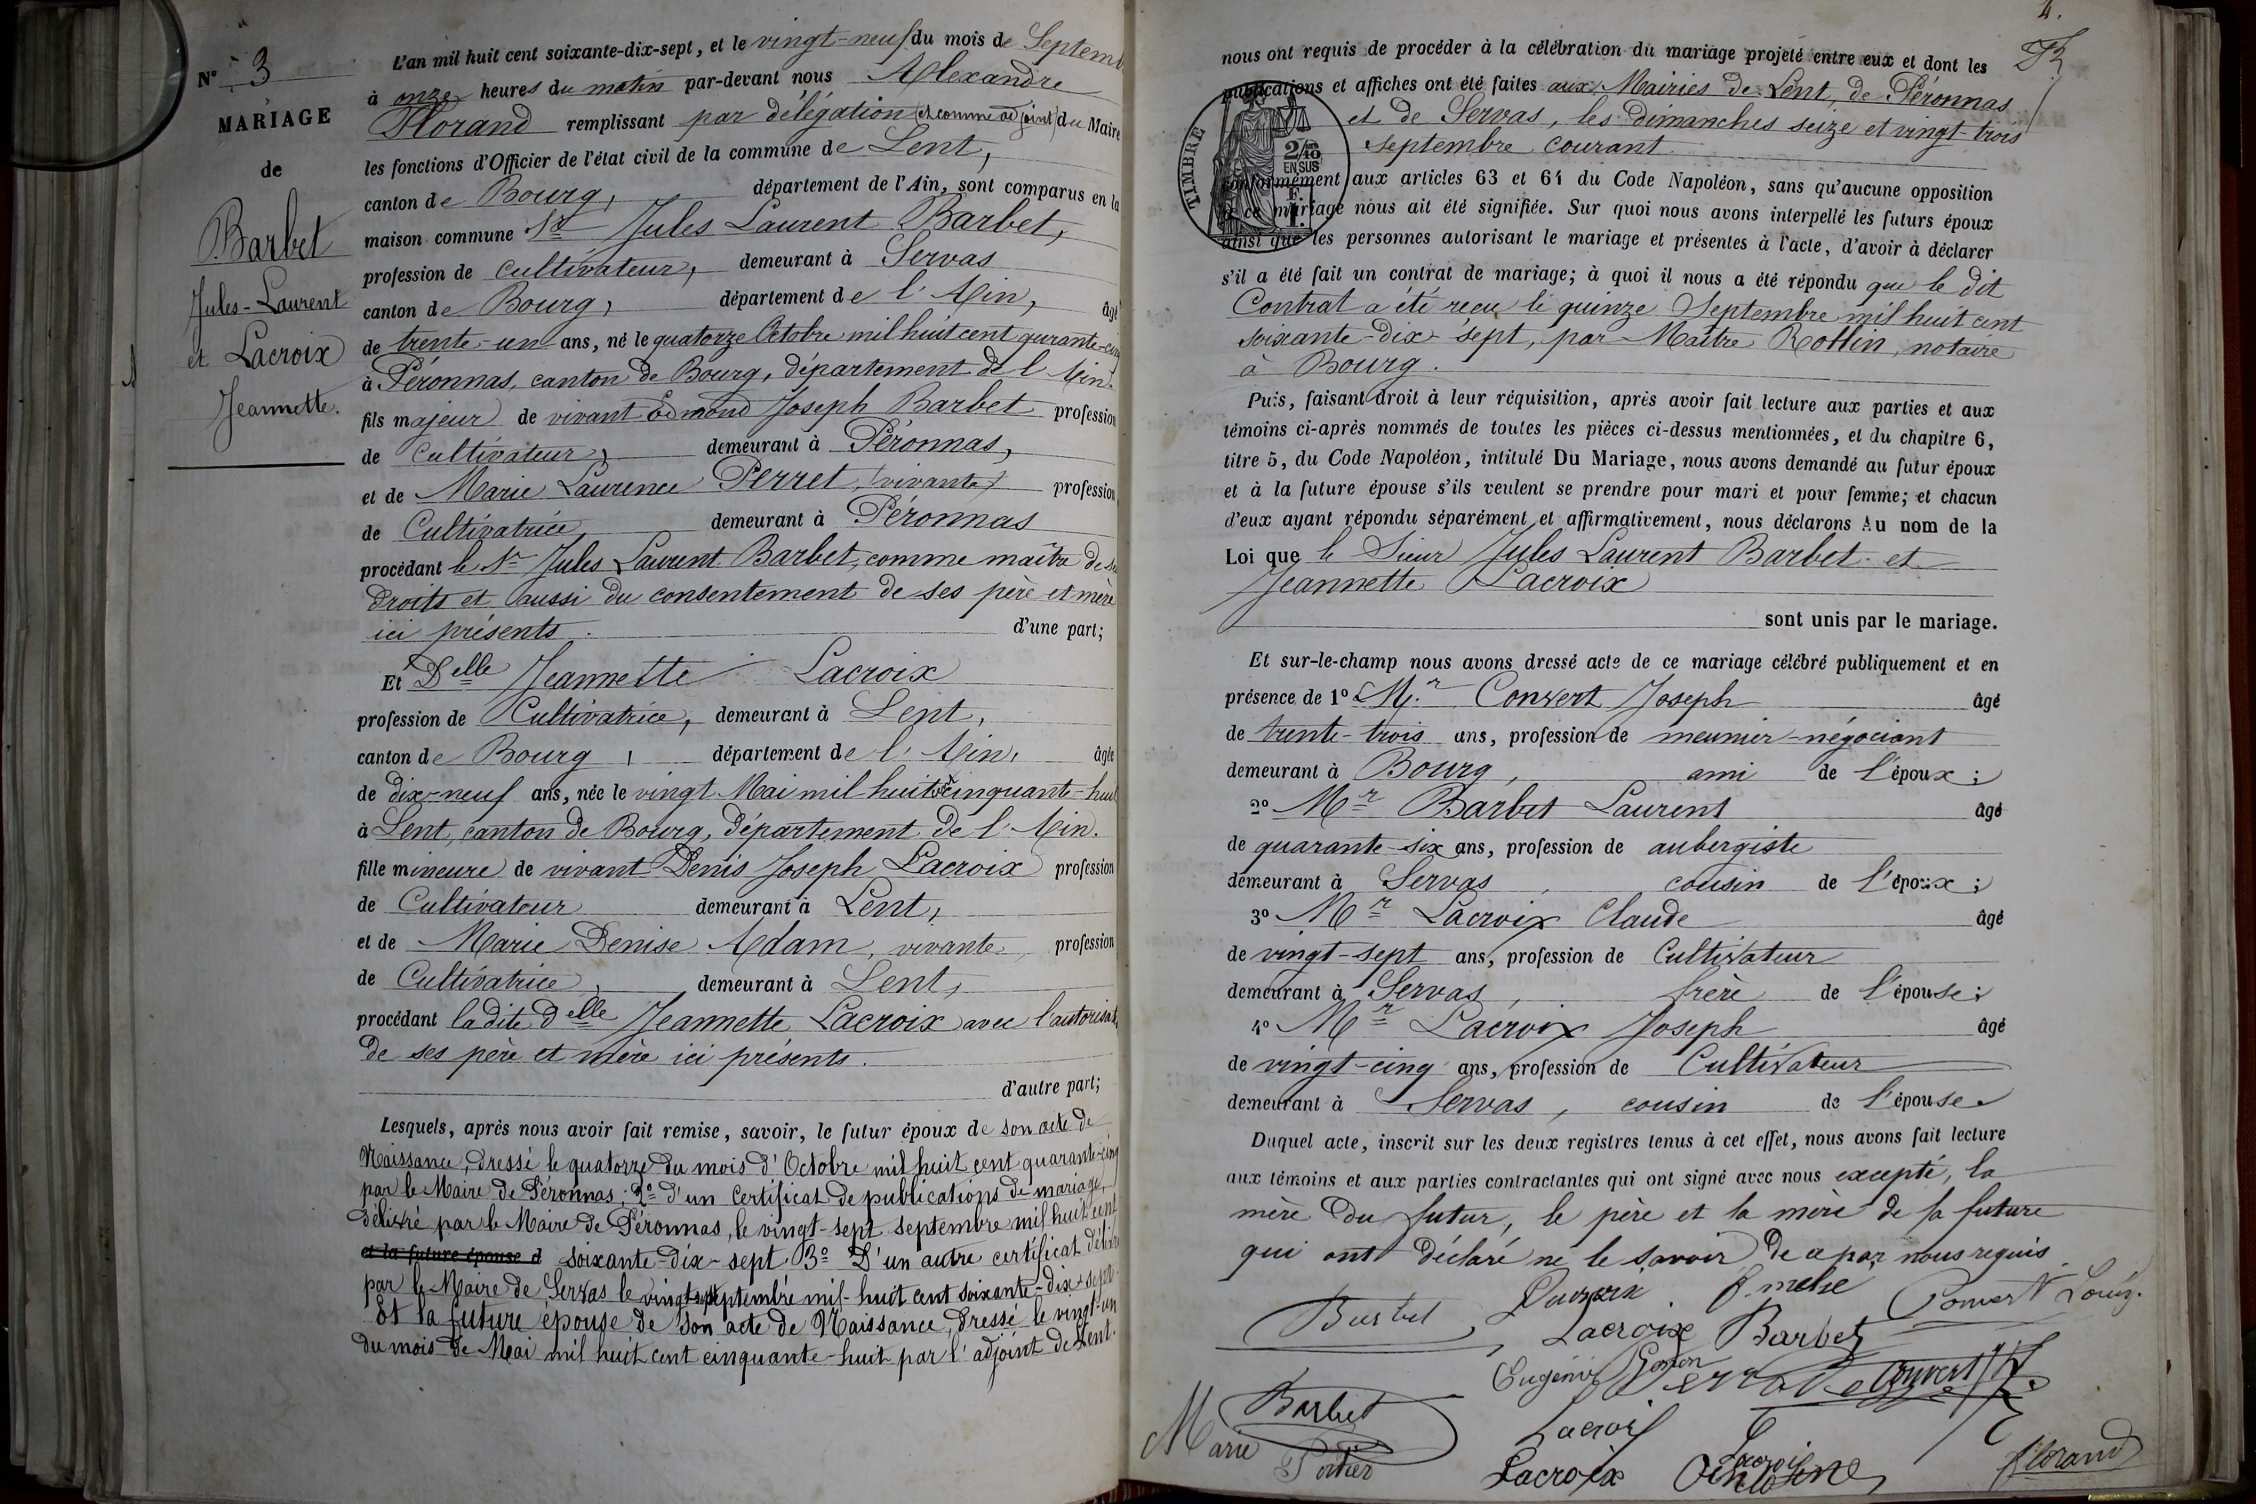 N° 3
MARIAGE
de
Barbet
Jules-Laurent
et Lacroix
Jeannette.
L'an mil huit cent soixante-dix-sept, et le vingt-neuf du mois de Septemb
à onze heures du matin par-devant nous Alexandre
Florand remplissant par délégation (et comme adjoint) du Maire
les fonctions d'Officier de l'état civil de la commune de Lent,
canton de Bourg, département de l'Ain, sont comparus en la
maison commune Sr Jules Laurent Barbet,
profession de cultivateur, demeurant à Servas
canton de Bourg, département de l'Ain, âgé
de trente-un ans, né le quatorze Octobre mil huit cent qurante-cinq
à Péronnas, canton de Bourg, département de l'Ain.
fils majeur de vivant Edmond Joseph Barbet profession
de Cultivateur, demeurant à Péronnas,
et de Marie Laurence Perret, (vivante) profession
de Cultivatrice demeurant à Péronnas
procédant le Sr Jules Laurent Barbet, comme maître de ses
droits et aussi du consentement de ses père et mère
ici présents. d'une part;
Et Delle Jeannette Lacroix
profession de Cultivatrice, demeurant à Lent,
canton de Bourg, département de l'Ain, âgée
de dix-neuf ans, née le vingt Mai mil huit ct cinquante-huit
à Lent, canton de Bourg, département de l'Ain.
fille mineure de vivant Denis Joseph Lacroix profession
de Cultivateur demeurant à Lent,
et de Marie Denise Adam, vivante, profession
de Cultivatrice, demeurant à Lent,
procédant la dite delle Jeannette Lacroix avec l'autorisat
de ses père et mère ici présents.
d'autre part;
Lesquels, après nous avoir fait remise, savoir, le futur époux de son acte de
Naissance, dressé le quatorze du mois d'Octobre mil huit cent quarante-cinq
par le Maire de Péronnas; 2° d'un Certificat de publications de mariage,
délivré par le Maire de Péronnas, le vingt-sept septembre mil huit cent
et la future épouse d soixante-dix-sept 3° D'un autre certificat délivré
par le Maire de Servas le vingt-sept septembre mil-huit cent soixante-dix-sept
Et la future épouse de son acte de Naissance, dressé le vingt-un
du mois de Mai mil huit cent cinquante-huit par l'adjoint de Lent.
4.
nous ont requis de procéder à la célébration du mariage projeté entre eux et dont les
publications et affiches ont été faites aux Mairies de Lent, de Péronnas
et de Servas, les dimanches seize et vingt-trois
septembre courant
TIMBRE
2/10
EN SUS
conformément aux articles 63 et 64 du Code Napoléon, sans qu'aucune opposition
à ce mariage nous ait été signifiée. Sur quoi nous avons interpellé les futurs époux
ainsi que les personnes autorisant le mariage et présentes à l'acte, d'avoir à déclarer
s'il a été fait un contrat de mariage; à quoi il nous a été répondu que le dit
Contrat a été recu le quinze Septembre mil huit cent
soixante-dix-sept, par Maître Rollin, notaire
à Bourg.
Puis, faisant droit à leur réquisition, après avoir fait lecture aux parties et aux
témoins ci-après nommés de toutes les pièces ci-dessus mentionnées, et du chapitre 6,
titre 5, du Code Napoléon, intitulé Du Mariage, nous avons demandé au futur époux
et à la future épouse s'ils veulent se prendre pour mari et pour femme; et chacun
d'eux ayant répondu séparément et affirmativement, nous déclarons Au nom de la
Loi que le Sieur Jules Laurent Barbet et
Jeannette Lacroix
sont unis par le mariage.
Et sur-le-champ nous avons dressé acte de ce mariage célébré publiquement et en
présence de 1° Mr Convert Joseph âgé
de trente-trois ans, profession de meunier-négociant
demeurant à Bourg, ami de l'époux;
2° Mr Barbet Laurent âgé
de quarante-six ans, profession de aubergiste
demeurant à Servas, cousin de l'époux;
3° Mr Lacroix Claude âgé
de vingt-sept ans, profession de Cultivateur
demeurant à Servas, frère de l'épouse;
4° Mr Lacroix Joseph âgé
de vingt-cinq ans, profession de Cultivateur
demeurant à Servas, cousin de l'épouse
Duquel acte, inscrit sur les deux registres tenus à cet effet, nous avons fait lecture
aux témoins et aux parties contractantes qui ont signé avec nous excepté, la
mère du futur, le père et la mère de la future
qui ont déclaré ne le savoir de ce par nous requis
Barbet Lacroix Convert Louis.
Lacroix Barbet
Eugénie Convert
Barbet Lacroix
Marie Portier Lacroix Lacroix Florand